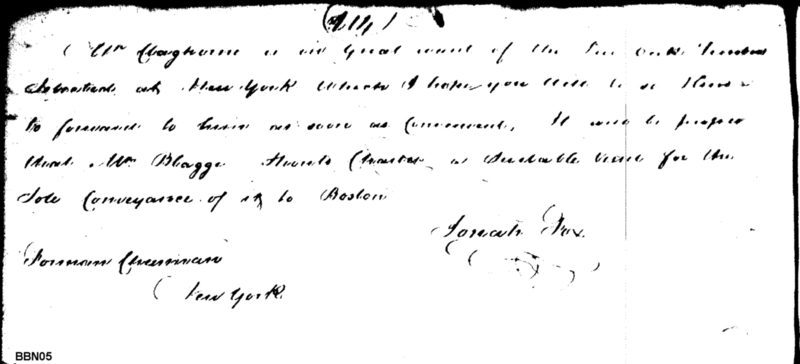 (214)
Mr Claghorne is in Great want of the Live Oak Timber
at New York which I hope you will be so kind
to forward to him as soon as Convenient, It will be proper
that Mr Blagge Should Charter a Suitable Vessel for the
Sole Conveyance of it to Boston
Josiah Fox
Forman Cheesman
New York
BBN05